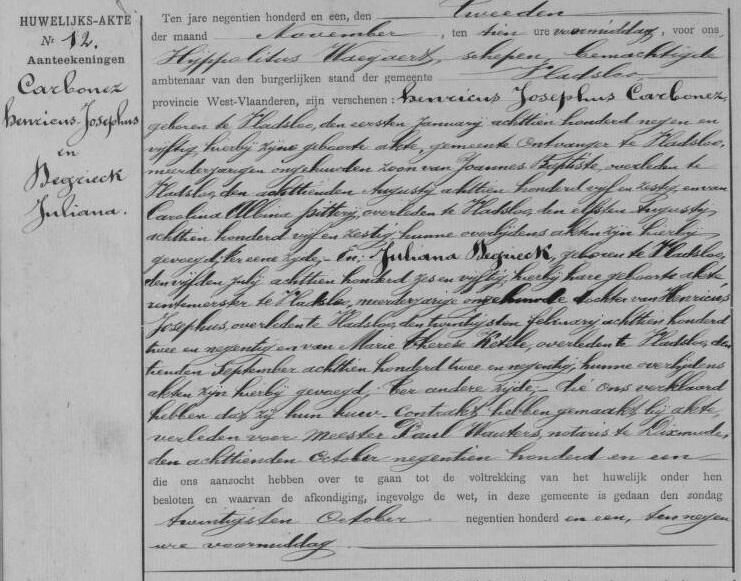 HUWELIJKS-AKTE
Nr 12.
Aanteekeningen
Carbonez
Henricus-Josephus
en
Begrieck
Juliana.
Ten jare negentien honderd en een, den tweeden
der maand November, ten tien ure voormiddag, voor ons
Hyppolitus Waeyaert, schepen, gemachtigde
ambtenaar van den burgerlijken stand der gemeente Vladsloo,
provincie West-Vlaanderen, zijn verschenen: Henricus Josephus Carbonez,
geboren te Vladsloo, den eersten Januarij achttien honderd negen en
vijftig, hierbij zijne geboorte akte, gemeente Ontvanger te Vladsloo,
meerderjarigen ongehuwden zoon van Joannes Baptiste, overleden te
Vladsloo, den achttienden Augusty achttien honderd vijf en zestig, en van
Carolina Albina Pitterij, overleden te Vladsloo, den elfsten Augusty
achttien honderd vijf en zestig, hunne overlijdens akten zijn hierbij
gevoegd, ter eene zijde, – En: Juliana Begrieck, geboren te Vladsloo,
den vijfden July achttien honderd zes en vijftig, hierbij hare geboorte akte
rentenierster te Vladsloo, meerderjarige ongehuwde dochter van Henricus
Josephus, overleden te Vladsloo, den twintijsten february achttien honderd
twee en negentig en van Marie Therese Ketele, overleden te Vladsloo, den
tienden September achttien honderd twee en negentig, hunne overlijdens
akten zijn hierbij gevoegd, ter andere zijde, – die ons verklaard
hebben daz zij hun trouw-contrakt hebben gemaakt bij akte,
verleden voor Meester Paul Wauters, notaris te Dixmude,
den achttienden October negentien honderd en een
die ons aanzocht hebben over te gaan tot de voltrekking van het huwelijk onder hen
besloten en waarvan de afkondiging, ingevolge de wet, in deze gemeente is gedaan den zondag
twintijsten October negentien honderd en een, ten negen
ure voormiddag